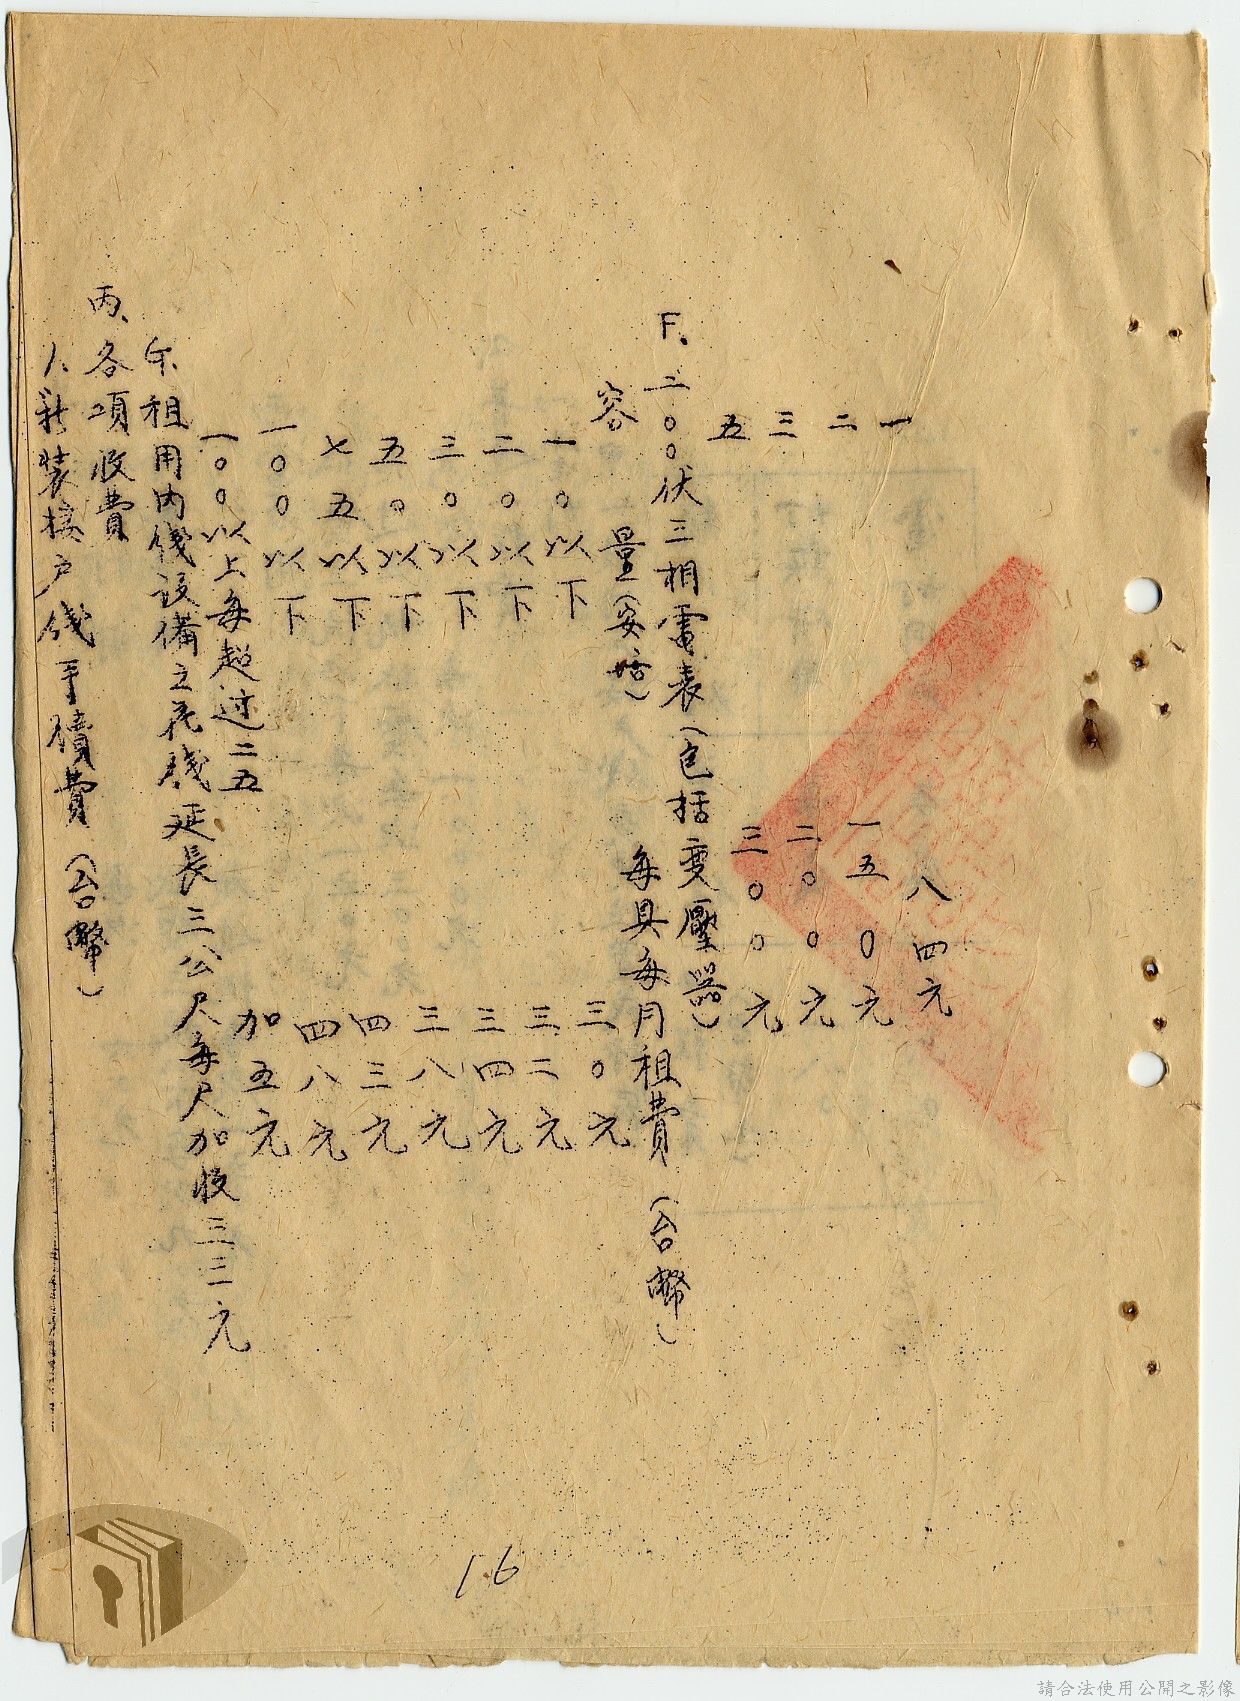 一　八四元
二　一五〇元
三　二〇〇元
五　三〇〇元
F、二〇〇伏三相電表（包括变壓器）
容量（安培）　每具每月租費（台幣）
一〇以下　三〇元
二〇以下　三二元
三〇以下　三四元
五〇以下　三八元
七五以下　四三元
一〇〇以下　四八元
一〇〇以上每超过二五　加五元
G、租用内綫設備之花綫延長三公尺每尺加收三三元
丙、各項收費
1、新装接户綫手續費（台幣）
16
請合法使用公開之影像